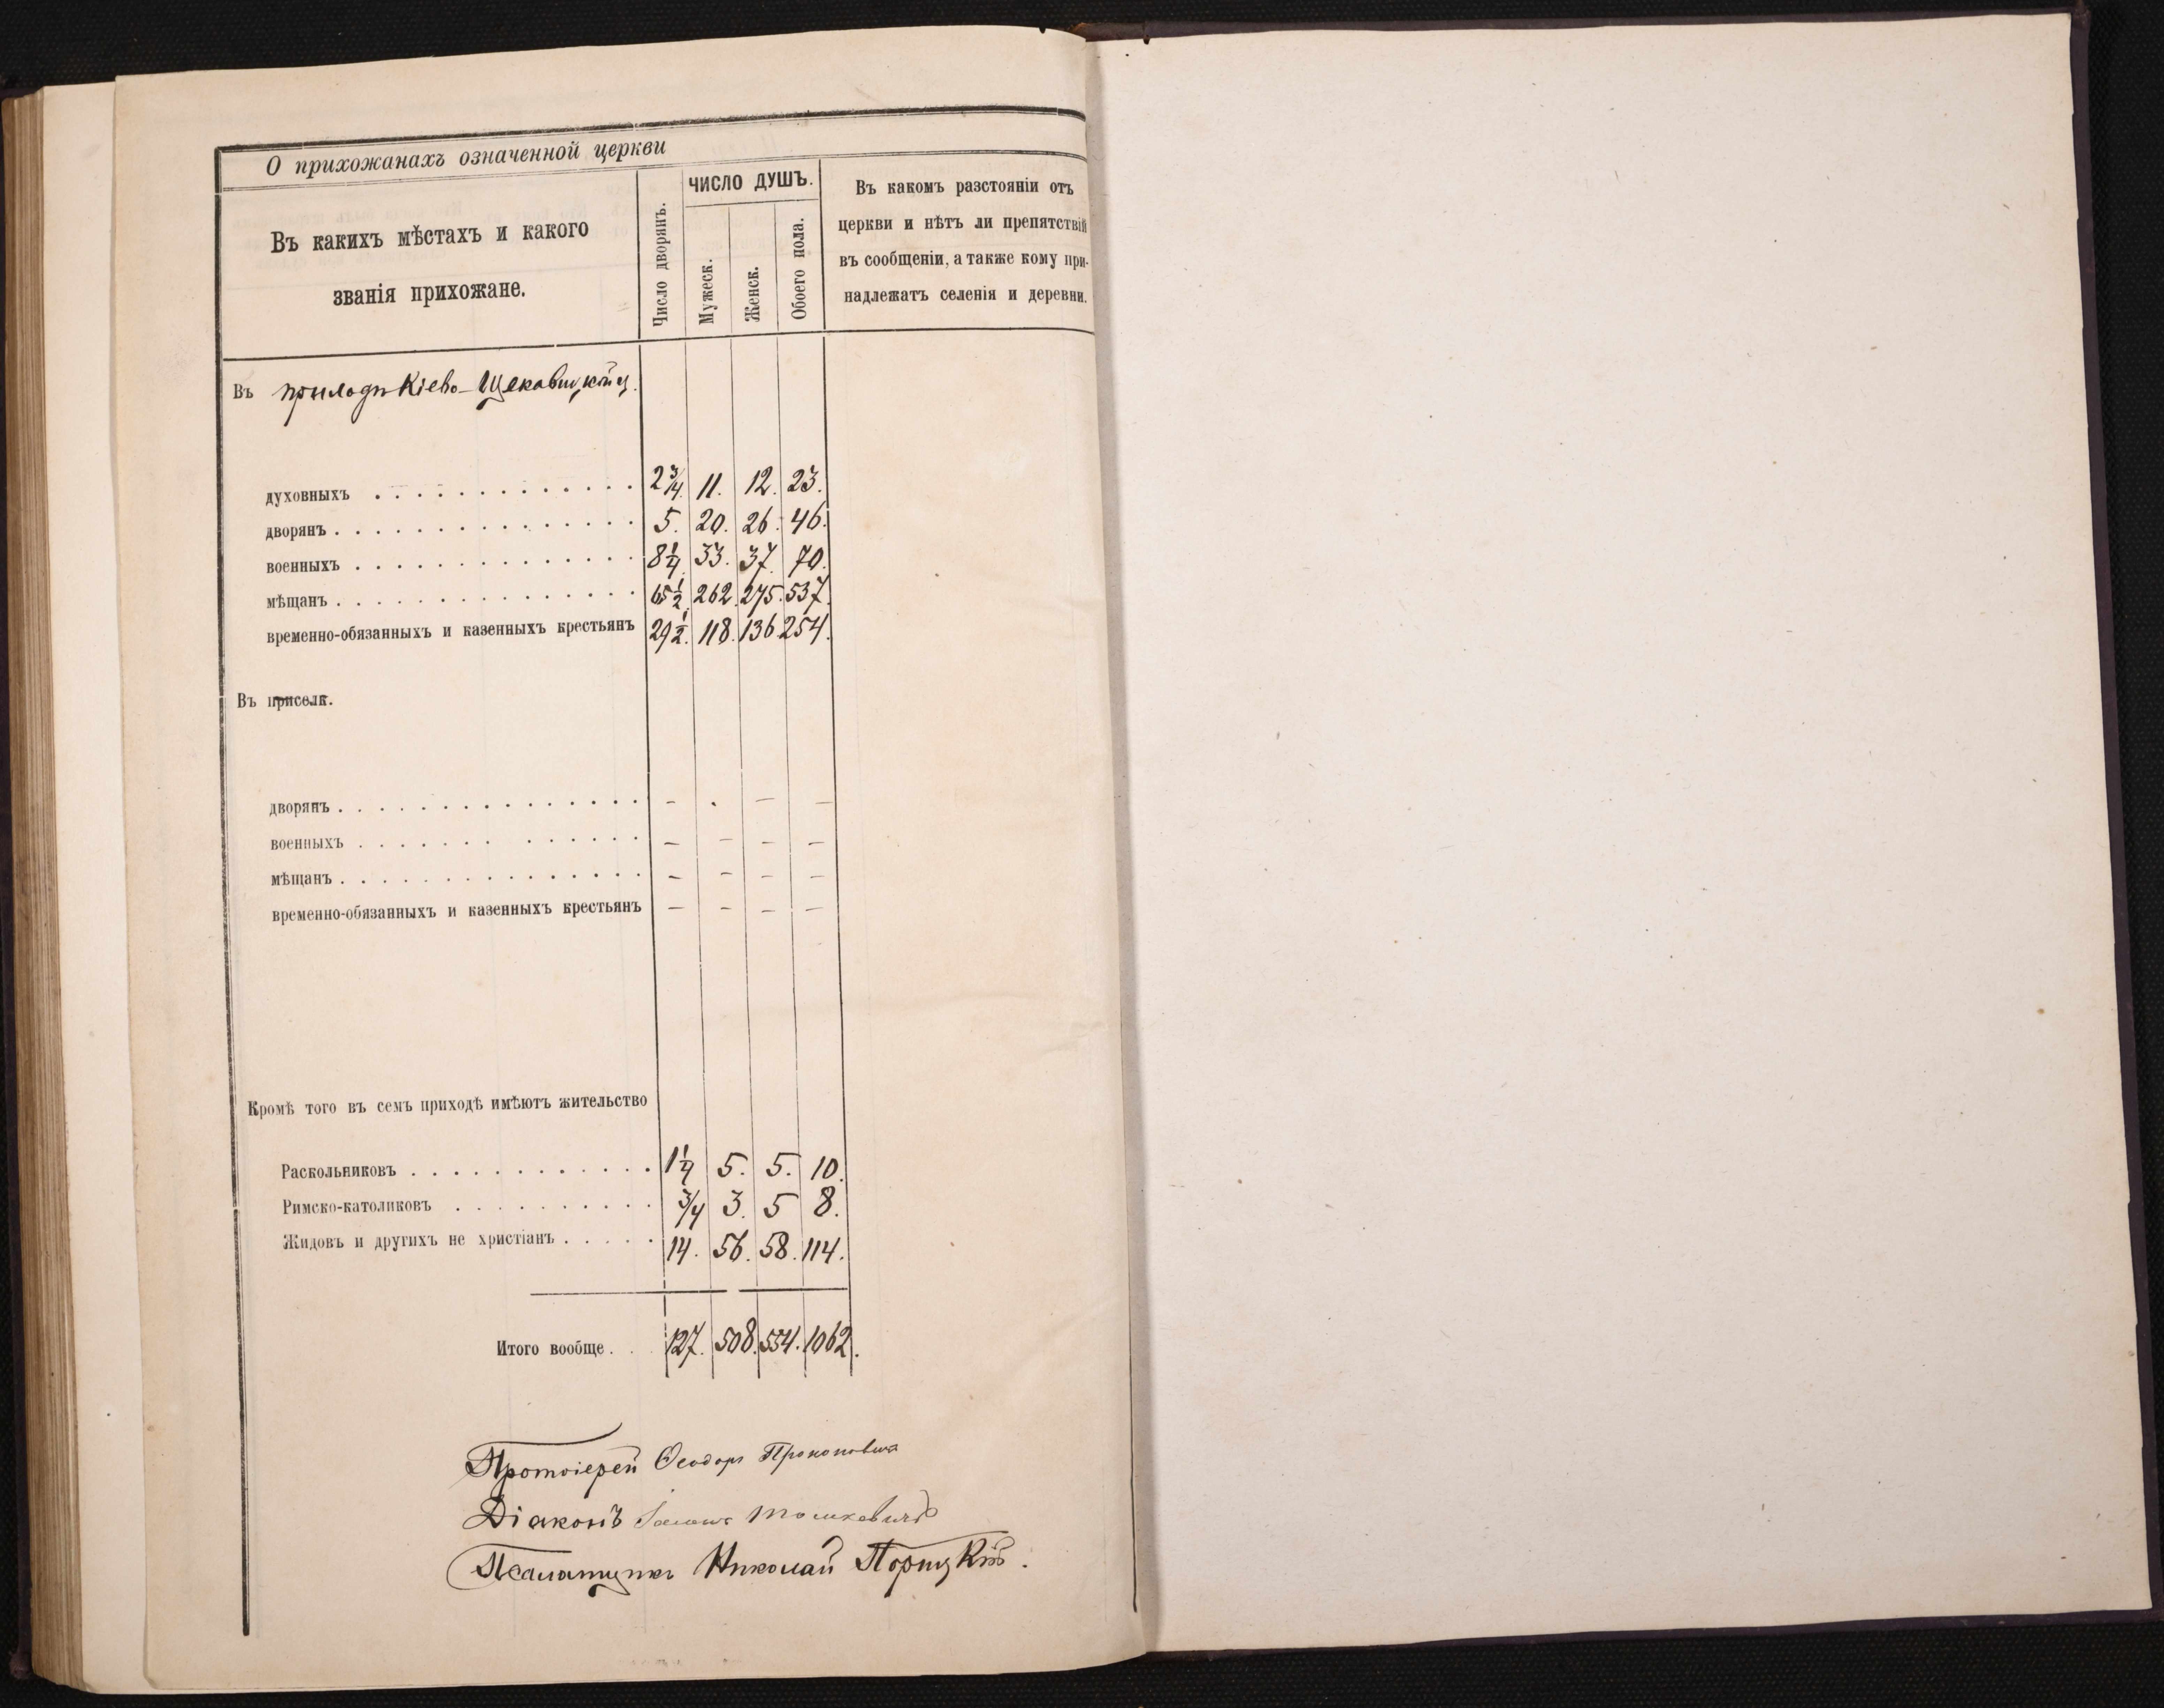 О прихожанахъ означенной церкви
Въ какихъ мѣстахъ и какого
званія прихожане.
Число дворянъ.
ЧИСЛО ДУШЪ.
Мужеск.
Женск.
Обоего пола.
Въ какомъ разстояніи отъ
церкви и нѣтъ ли препятствій
въ сообщеніи, а также кому при-
надлежатъ селенія и деревни.
Въ приходѣ Кіево-Щекавицкой ц.
духовныхъ . . . . . . . . . . . . . 2 3/4. 11. 12. 23.
дворянъ . . . . . . . . . . . . . . . 5. 20. 26. 46.
военныхъ . . . . . . . . . . . . . . 8 1/4. 33. 37. 70.
мѣщанъ . . . . . . . . . . . . . . . 65 1/2. 262. 275. 537.
временно-обязанныхъ и казенныхъ крестьянъ 29 1/2. 118. 136. 254.
Въ приселк.
дворянъ . . . . . . . . . . . . . . . – . – –
военныхъ . . . . . . . . . . . . . – – – –
мѣщанъ . . . . . . . . . . . . . . . – – – –
временно-обязанныхъ и казенныхъ крестьянъ – – – –
Кромѣ того въ семъ приходѣ имѣютъ жительство
Раскольниковъ . . . . . . . . . . . . 1 1/4 5. 5. 10.
Римско-католиковъ . . . . . . . . . . 3/4 3. 5 8.
Жидовъ и другихъ не христіанъ . . . . . 14. 56. 58. 114.
Итого вообще . . 127. 508. 554. 1062.
Протоіерей Ѳеодоръ Прокоповичъ
Діаконъ Тошкевичъ
Псаломщикъ Николай